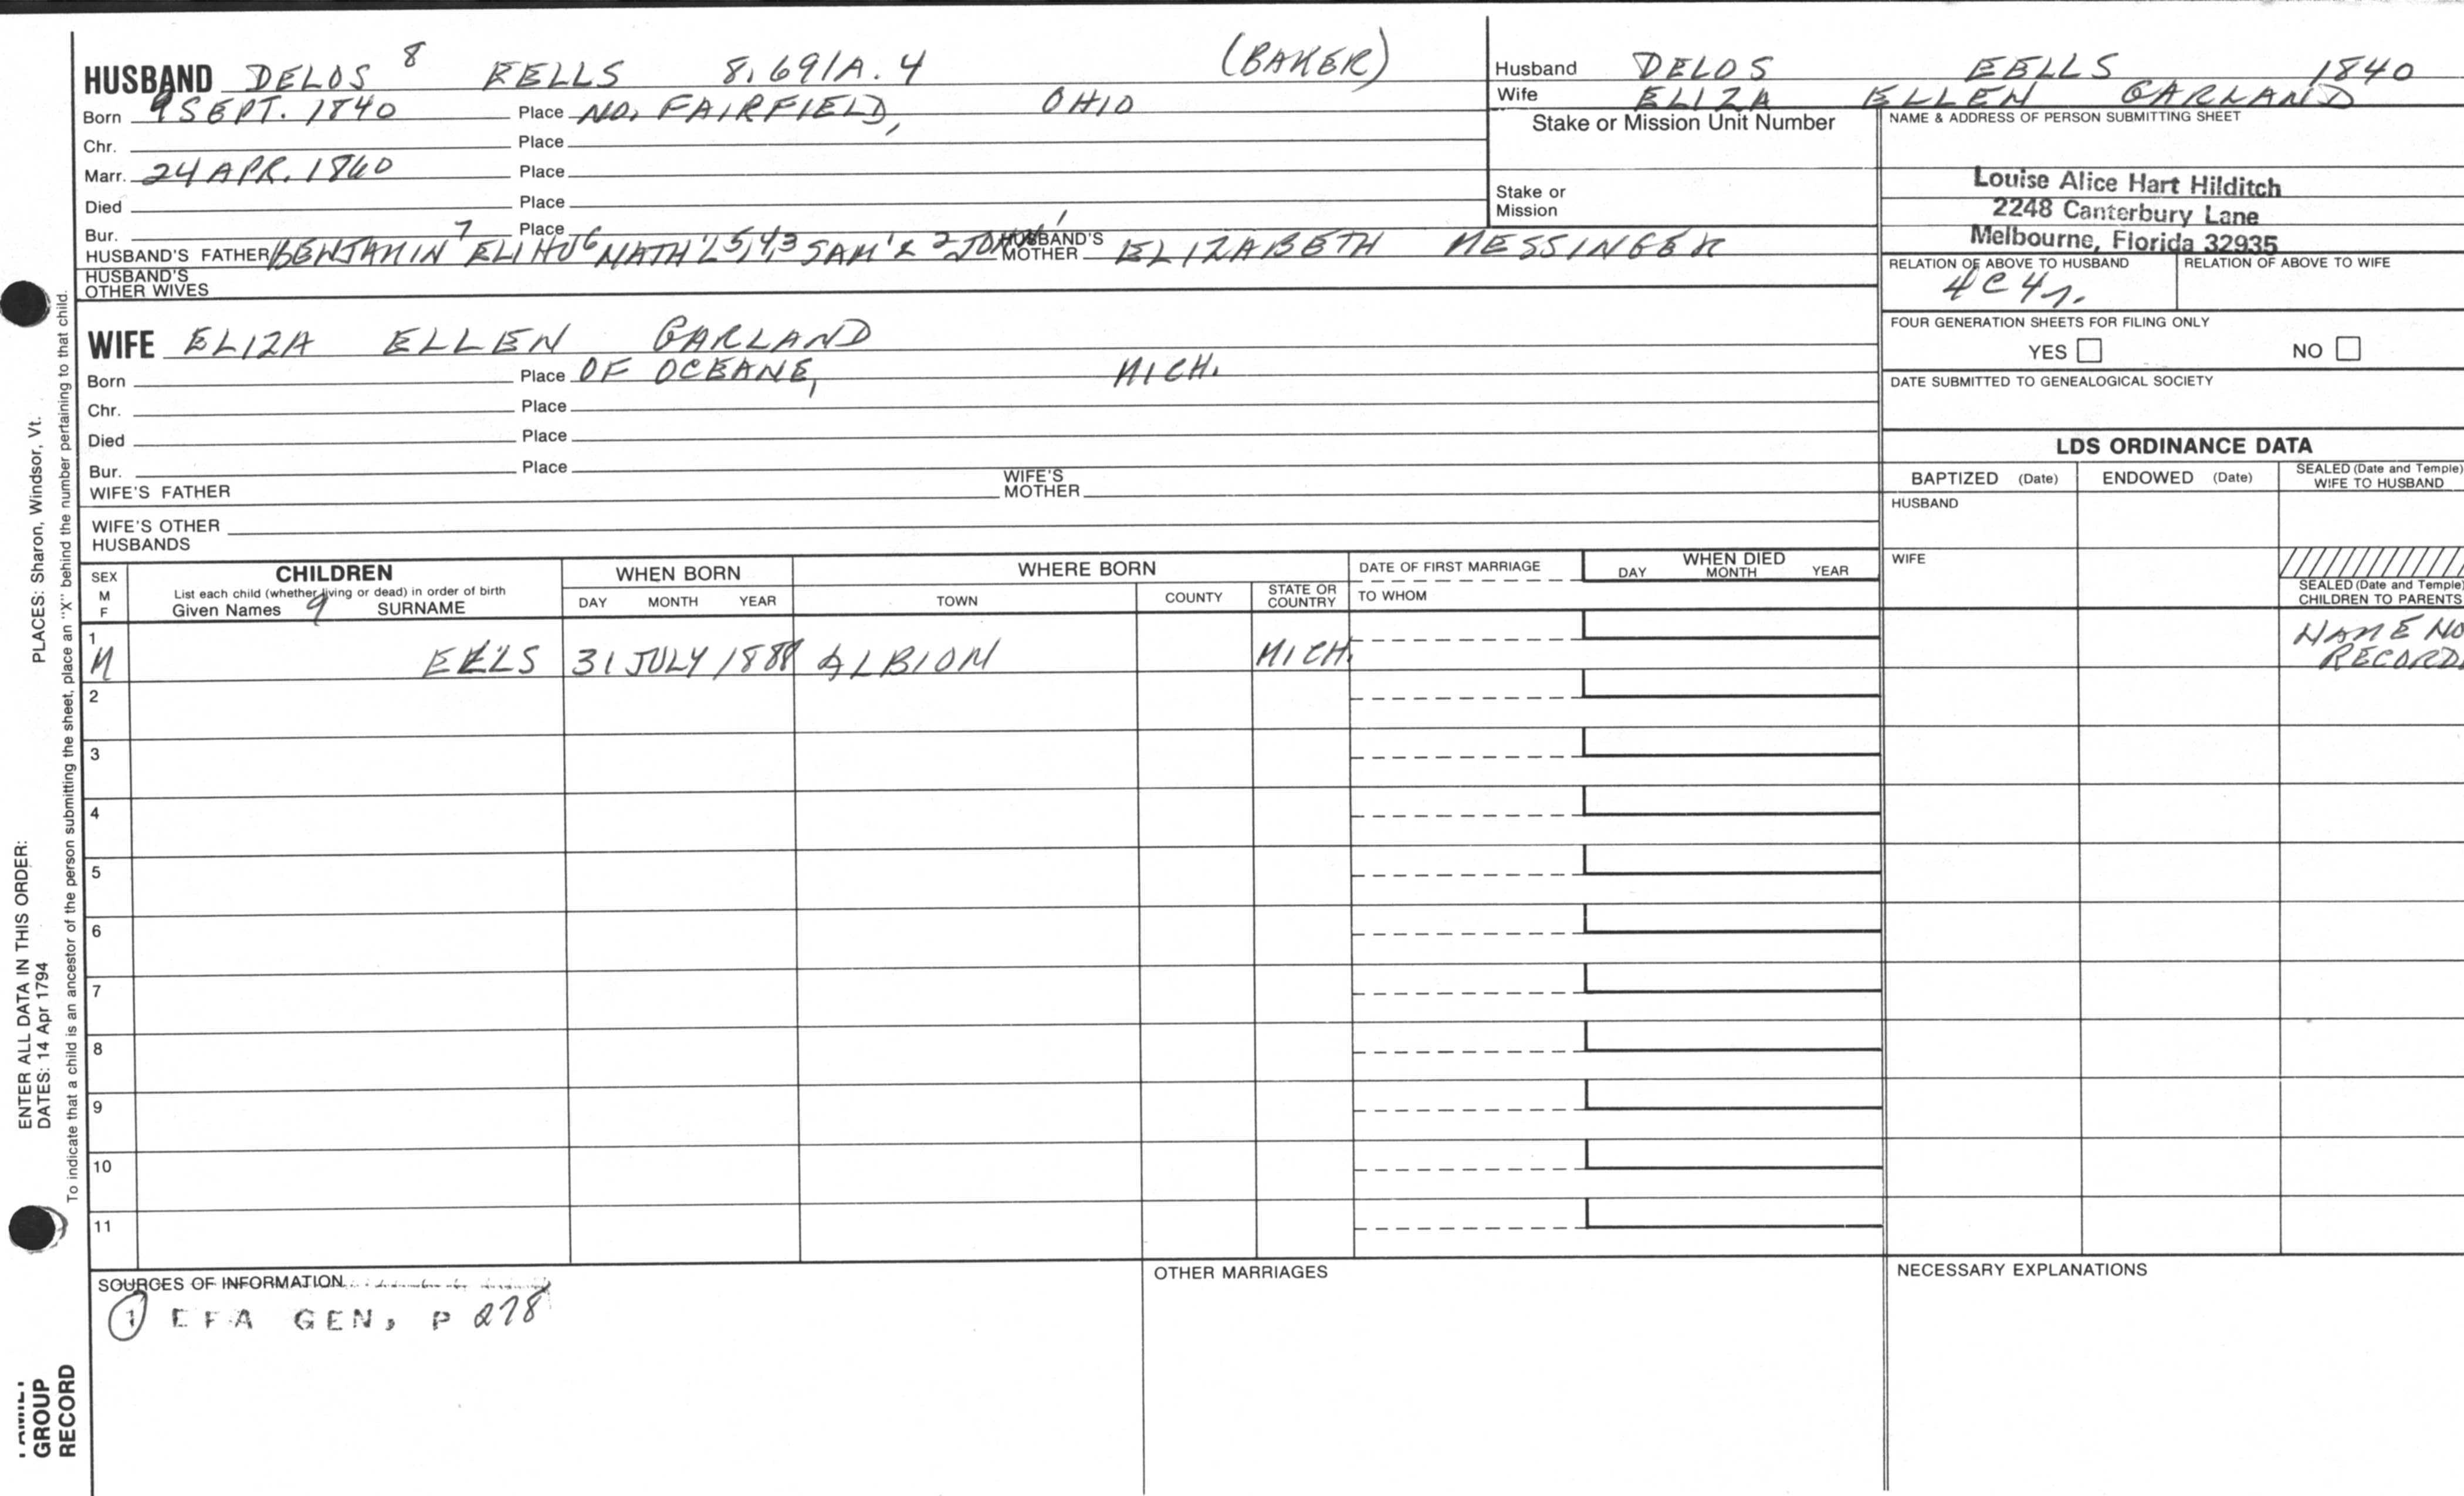 HUSBAND DELOS 8 EELLS 8.691A.4 (BAKER)
Born 9 SEPT. 1840 Place NO. FAIRFIELD, OHIO
Chr. Place
Marr. 24 APR. 1860 Place
Died Place
Bur. Place
HUSBAND'S FATHER BENJAMIN 7 ELIHU 6 NATH'L 5,4,3 SAM'L 2 JOHN 1 HUSBAND'S MOTHER ELIZABETH MESSINGER
HUSBAND'S OTHER WIVES
Husband DELOS EELLS 1840
Wife ELIZA ELLEN GARLAND
Stake or Mission Unit Number
Stake or Mission
NAME & ADDRESS OF PERSON SUBMITTING SHEET
Louise Alice Hart Hilditch
2248 Canterbury Lane
Melbourne, Florida 32935
RELATION OF ABOVE TO HUSBAND RELATION OF ABOVE TO WIFE
4C4r.
FOUR GENERATION SHEETS FOR FILING ONLY
YES NO
DATE SUBMITTED TO GENEALOGICAL SOCIETY
WIFE ELIZA ELLEN GARLAND
Born Place OF OCEANE, MICH.
Chr. Place
Died Place
Bur. Place
WIFE'S FATHER WIFE'S MOTHER
WIFE'S OTHER HUSBANDS
LDS ORDINANCE DATA
BAPTIZED (Date) ENDOWED (Date) SEALED (Date and Temple) WIFE TO HUSBAND
HUSBAND
WIFE
SEALED (Date and Temple) CHILDREN TO PARENTS
SEX M F
CHILDREN
List each child (whether living or dead) in order of birth
Given Names 9 SURNAME
WHEN BORN
DAY MONTH YEAR
WHERE BORN
TOWN COUNTY STATE OR COUNTRY
DATE OF FIRST MARRIAGE
TO WHOM
WHEN DIED
DAY MONTH YEAR
1 M EELS 31 JULY 1888 ALBION MICH. NAME NO RECORD
2
3
4
5
6
7
8
9
10
11
SOURCES OF INFORMATION
1 EFA GEN, P 278
OTHER MARRIAGES
NECESSARY EXPLANATIONS
ENTER ALL DATA IN THIS ORDER:
DATES: 14 Apr 1794 PLACES: Sharon, Windsor, Vt.
To indicate that a child is an ancestor of the person submitting the sheet, place an "X" behind the number pertaining to that child.
GROUP
RECORD